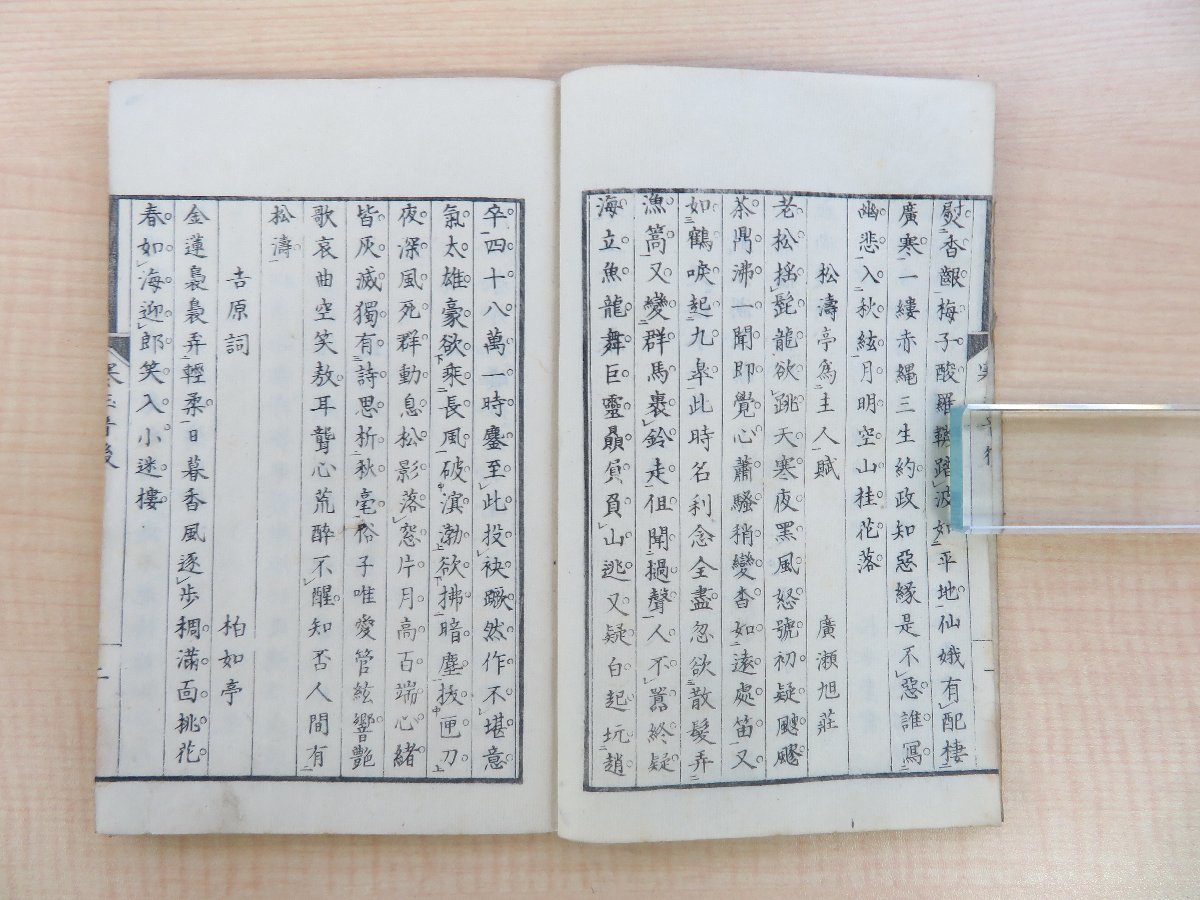 熨香齦梅子酸羅韈踏波如平地仙娥有配棲
廣寒一縷赤縄三生約政知惡緣是不惡誰寫
幽悲入秋絃月明空山桂花落
松濤亭為主人賦 廣瀨旭莊
老松搖髭龍欲跳天寒夜黑風怒號初疑颼飂
茶鼎沸一聞即覺心蕭騷稍變杳如遠處笛又
如鶴唳起九皐此時名利念全盡忽欲散髮弄
漁篙又變群馬裹鈴走但聞撾聲人不囂終疑
海立魚龍舞巨靈贔屓負山逃又疑白起坑趙
卒四十八萬一時鏖至此投袂蹶然作不堪意
氣太雄豪欲乘長風破溟渤欲拂暗塵拔匣刀
夜深風死群動息松影落窓片月高百端心緒
皆灰滅獨有詩思析秋毫俗子唯愛管絃響艶
歌哀曲空笑敖耳聾心荒醉不醒知否人間有
松濤
吉原詞 柏如亭
金蓮裊裊弄輕柔日暮香風逐步稠滿面桃花
春如海迎郎笑入小迷樓